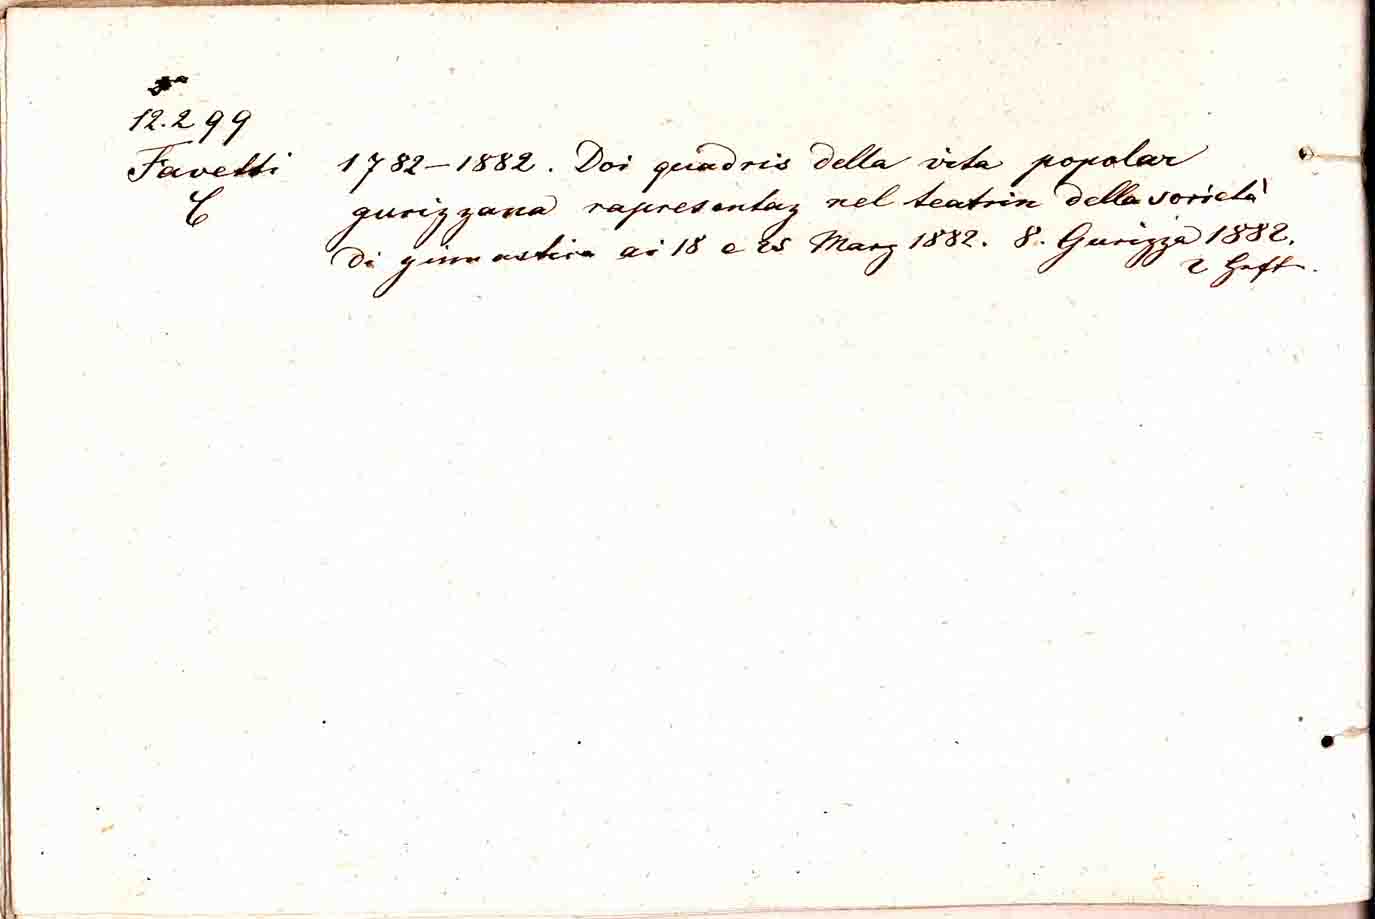 12.299
Favetti 1782–1882. Doi quadris della vita popolar
C gurizzana rapresentaz nel teatrin della società
di ginnastica ai 18 e 25 Marz 1882. 8. Gurizza 1882.
2 Heft.